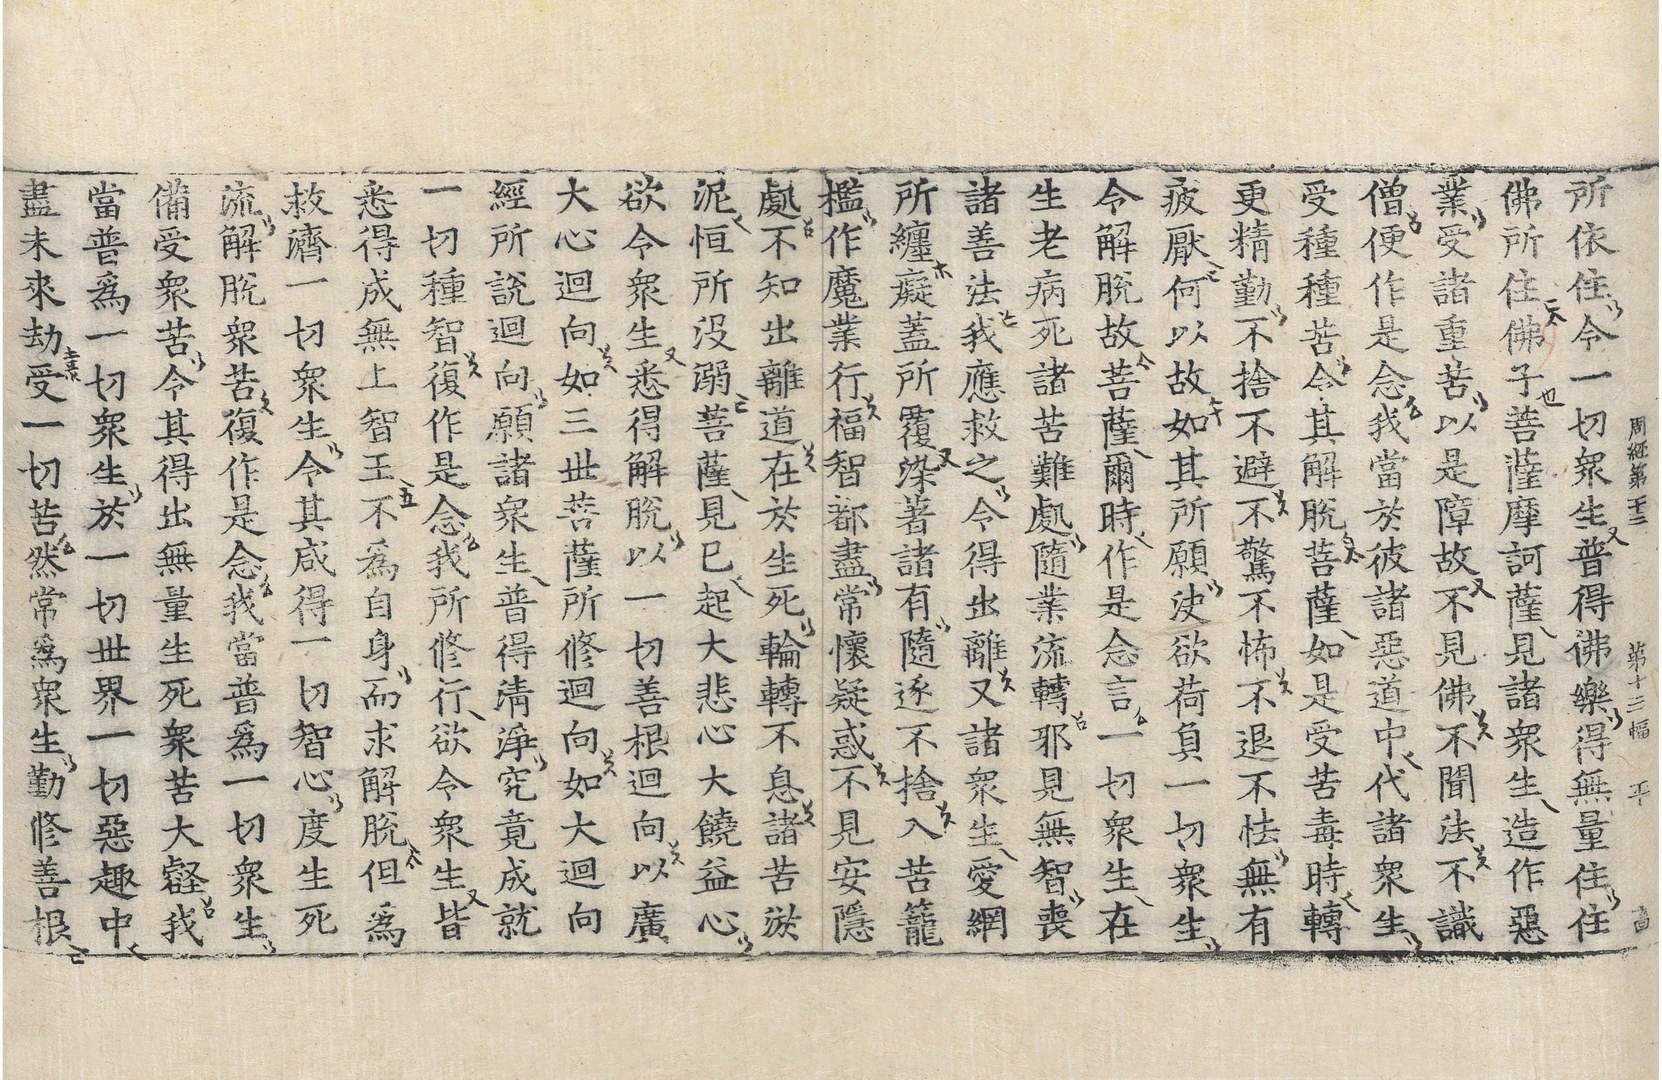 周經第二十三 第十三幅
所依住令一切眾生普得佛樂得無量住住
佛所住佛子菩薩摩訶薩見諸眾生造作惡
業受諸重苦以是障故不見佛不聞法不識
僧便作是念我當於彼諸惡道中代諸眾生
受種種苦令其解脫菩薩如是受苦毒時轉
更精勤不捨不避不驚不怖不退不怯無有
疲厭何以故如其所願決欲荷負一切眾生
令解脫故菩薩爾時作是念言一切眾生在
生老病死諸苦難處隨業流轉邪見無智喪
諸善法我應救之令得出離又諸眾生愛網
所纏癡蓋所覆染著諸有隨逐不捨入苦籠
檻作魔業行福智都盡常懷疑惑不見安隱
處不知出離道在於生死輪轉不息諸苦淤
泥恒所沒溺菩薩見已起大悲心大饒益心
欲令眾生悉得解脫以一切善根迴向以廣
大心迴向如三世菩薩所修迴向如大迴向
經所說迴向願諸眾生普得清淨究竟成就
一切種智復作是念我所修行欲令眾生皆
悉得成無上智王不為自身而求解脫但為
救濟一切眾生令其咸得一切智心度生死
流解脫眾苦復作是念我當普為一切眾生
備受眾苦令其得出無量生死眾苦大壑我
當普為一切眾生於一切世界一切惡趣中
盡未來劫受一切苦然常為眾生勤修善根